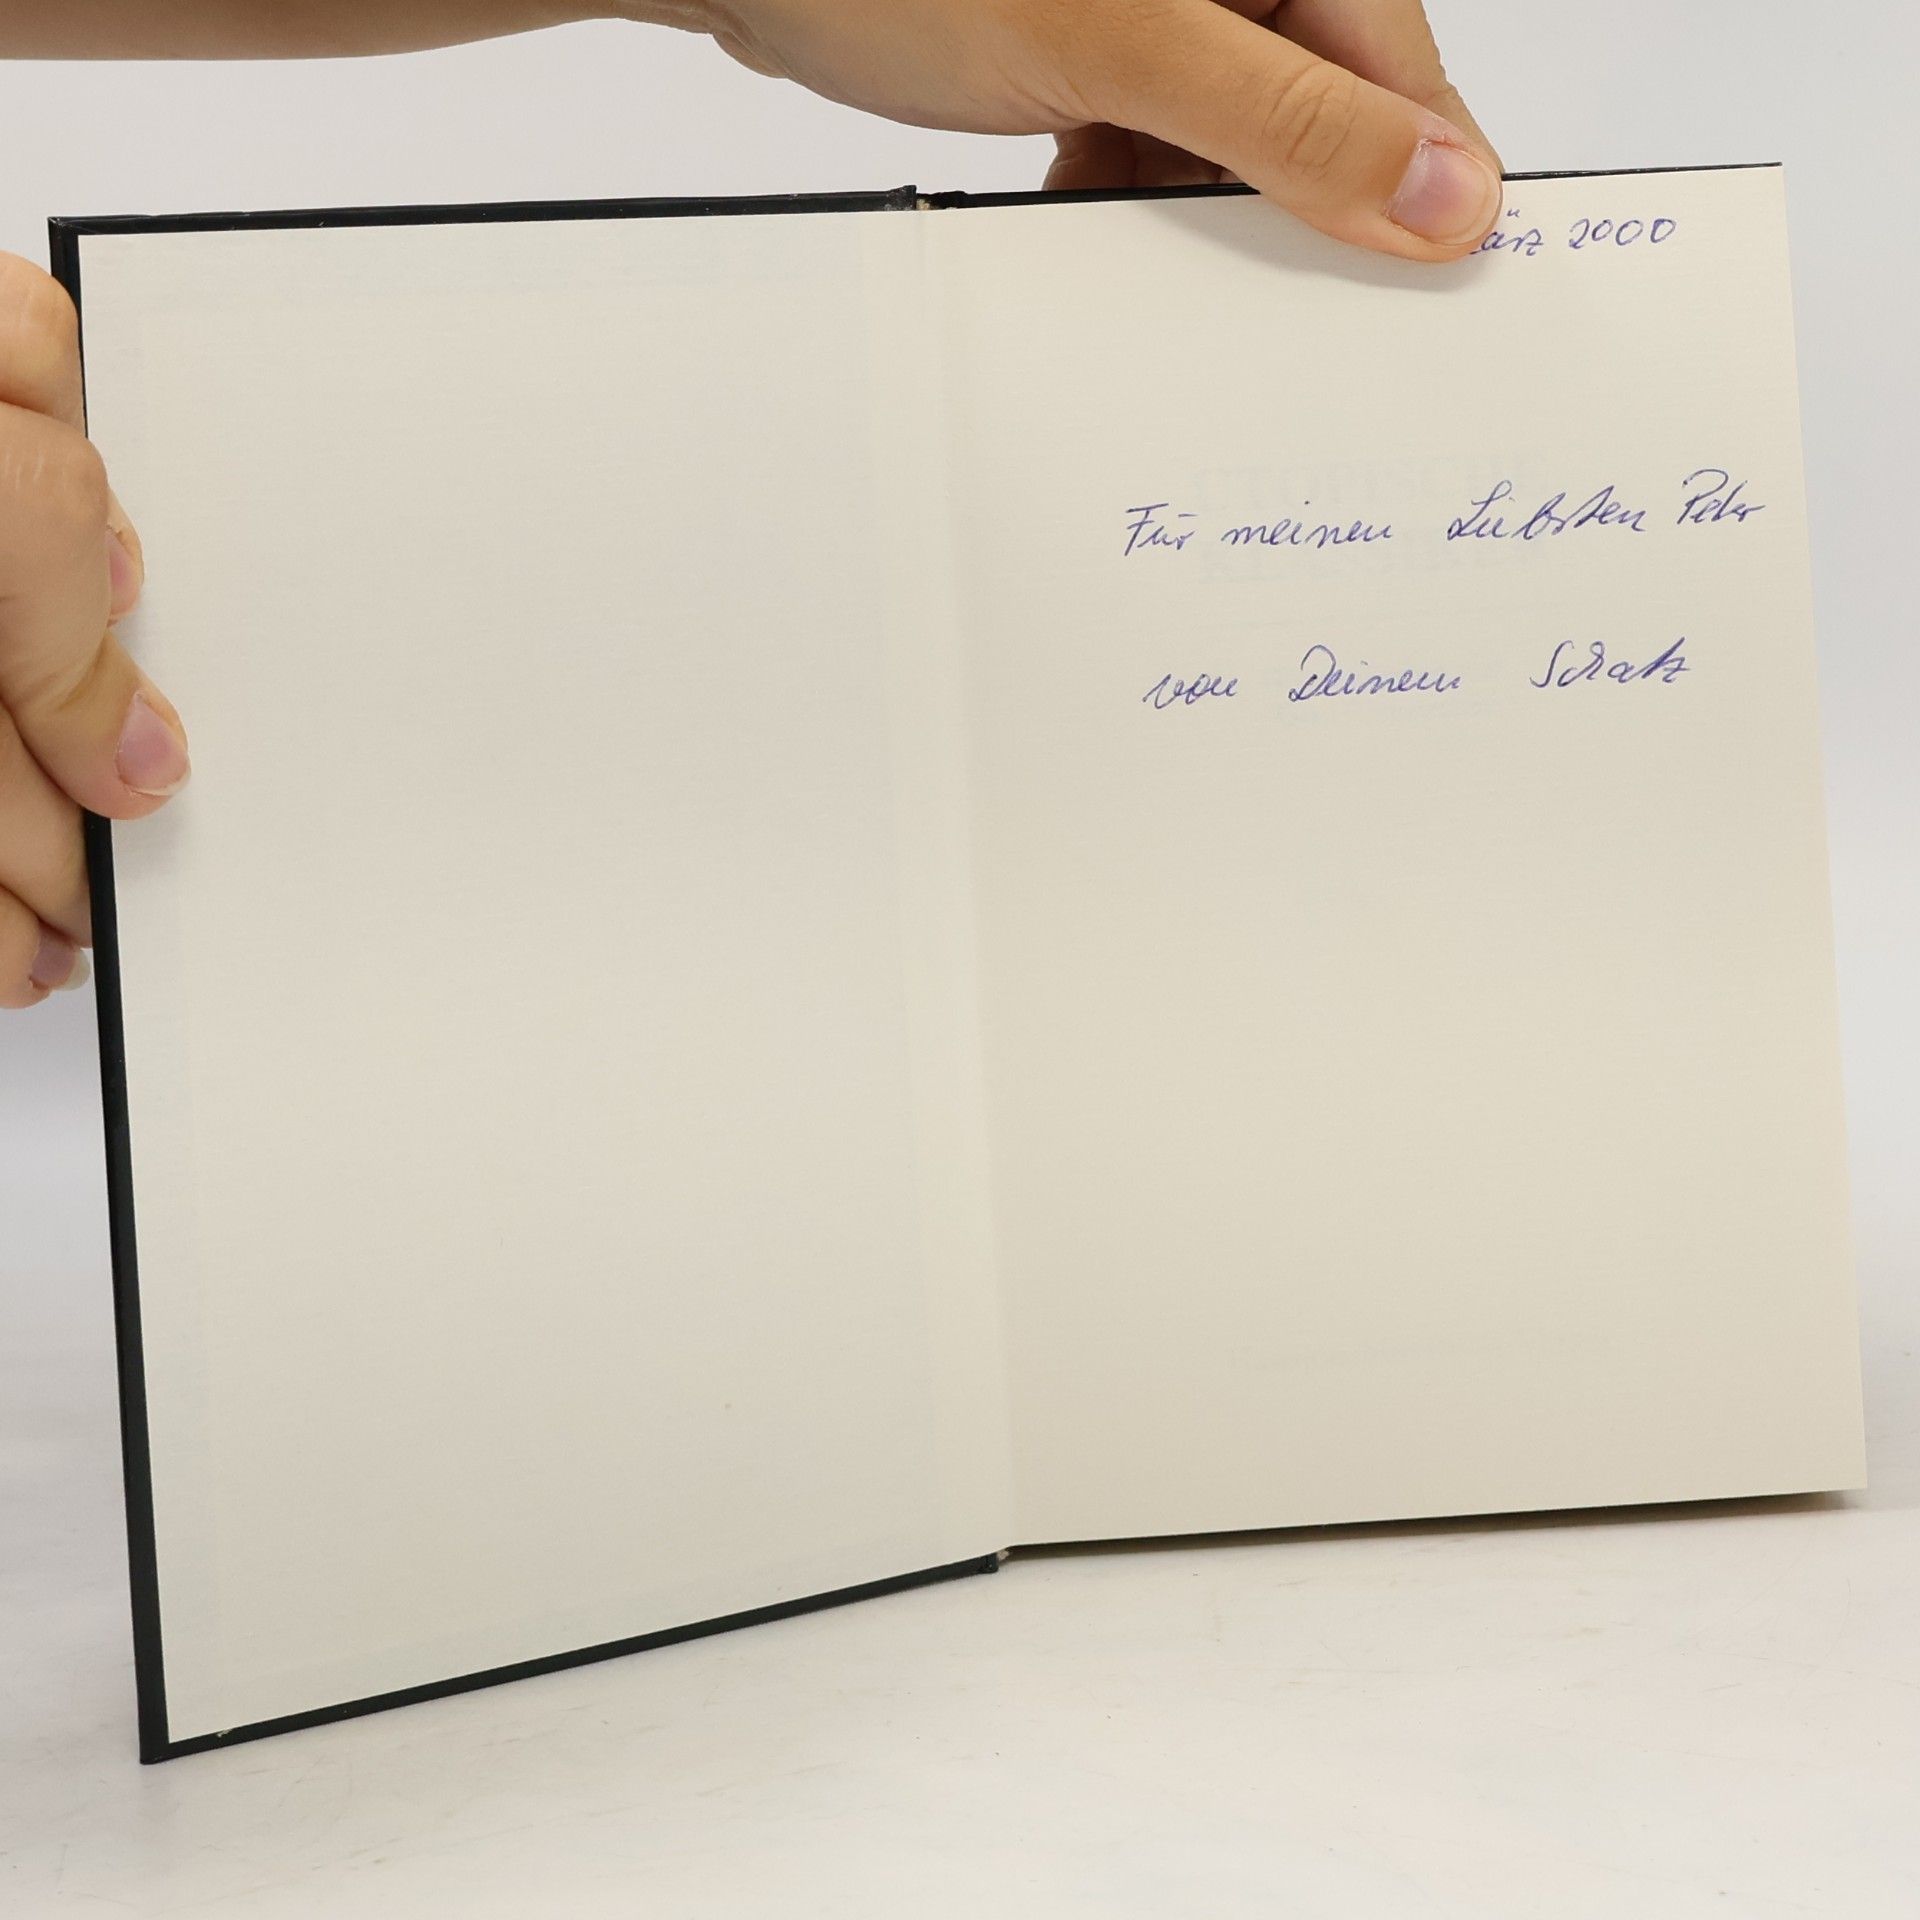 ärz 2000
Für meinen Liebsten Peter
von Deinem Schatz